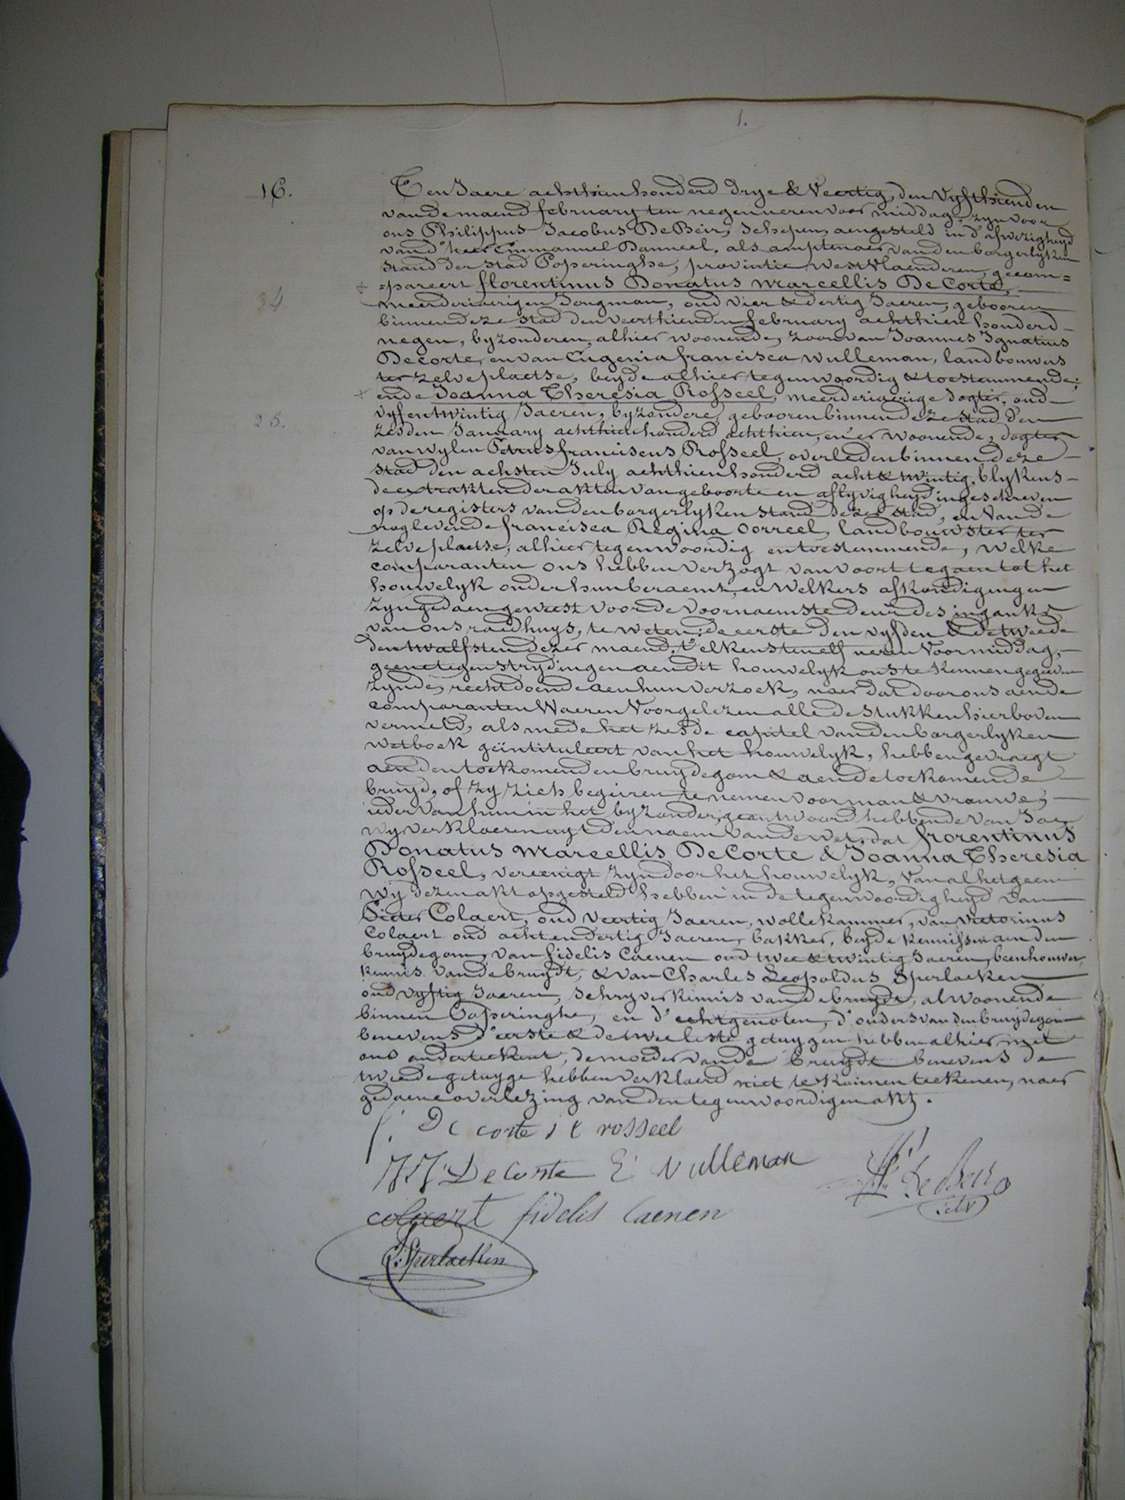 1.
16. Ten Jaere achthien honderd drye & Veertig, den Vyfthienden
van de maend february ten negen ueren voor middag, zyn voor
ons Philippus Jacobus De Beir, Schepen, aengesteld in d'afwezigheyd
van d'heer Emmanuel Banneel, als amptenaer van den borgerlyken
Stand der Stad Poperinghe, provintie WestVlaenderen, gecom=
+ pareert florentinus Donatus Marcellis DeCorte,
34 meerderjarigen Jongman, oud vier & dertig Jaeren, gebooren
binnen deze Stad den veerthienden february achthien honderd
negen, byzonderen, alhier woonende, zoon van Joannes Ignatius
Decorte, en van Eugenia francisca Wulleman, landbouwers
ter zelve plaetse, beyde alhier tegenwoordig & toestemmende;
+ ende Joanna Theresia Rosseel, meerderjarige dogter, oud
25. vyfentwintig Jaeren, byzondere, gebooren binnen deze Stad den
zesden January achthien honderd achthien, en er woonende, dogter
van wylen Petrus franciscus Rosseel, overleden binnen deze
Stad den achsten July achthien honderd acht & twintig, blykens
de extrakten der akten van geboorte en aflyvigheyd ingeschreven
op de registers van den borgerlyken Stand dezer Stad, en van de
nog levende francisca Regina Correel, landbouwster ter
zelve plaetse, alhier tegenwoordig en toestemmende, welke
comparanten ons hebben verzogt van voort te gaen tot het
houwelyk onder hun beraemt, en welkers afkondigingen
zyn gedaen geweest voor de voornaemste deur des ingangs
van ons raedhuys, te weten: de eerste den vyfden & de tweede
den twalfsten dezer maend, t'elkens ten elf ueren voormiddag,
geene tegenstrydingen aen dit houwelyk ons te kennen gegeven
zynde, recht doende aen hun verzoek, naer dat door ons aen de
comparanten waeren voorgelezen alle de Stukken hierboven
vermeld, als mede het zesde capitel van den borgerlyken
wetboek geintituleert van het houwelyk, hebben gevraegt
aen den toekomenden bruydegom & aen de toekomende
bruyd, of zy zich begeiren te nemen voor man & vrouwe;
ieder van hun in het byzonder geantwoord hebbende van Ja:
wy verklaeren uyt den naem van de wet, dat florentinus
Donatus Marcellis DeCorte & Joanna Theresia
Rosseel, vereenigt zyn door het houwelyk, van al het geen
wy dezen akt opgesteld hebben in de tegenwoordigheyd van
Pieter Colaert, oud veertig Jaeren, wollekammer, van Victorinus
Colaert oud acht en dertig Jaeren, bakker, beyde kennissen aen den
bruydegom, van fidelis Caenen oud twee & twintig Jaeren, beenhouwer,
kennis van de bruydt, & van Charles Leopoldus Sperlaeken
oud vyftig Jaeren, Schryver kennis van de bruydt, al woonende
binnen Poperinghe, en d'echtgenoten, d'ouders van den bruydegom
benevens d'eerste & de twee leste getuygen hebben alhier met
ons onderteekent, de moeder van de bruydt benevens de
tweede getuyge hebben verklaerd niet te konnen teekenen, naer
gedaene overlezing van den tegenwoordigen akt.
f. De corte i t rosseel
J J DeCorte E Vulleman
colaert fidelis Caenen
C. Sperlaeken
Ph. J. De Beir